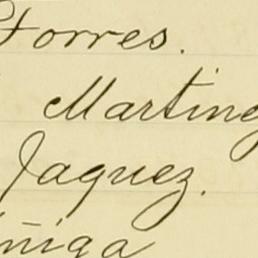 Torres.
Martine
Jaquez.
uñiga